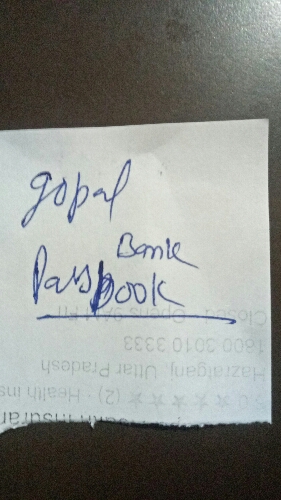 gopal
Bank
Passbook
Closed · Opens 9AM Fri
1800 3010 3333
Hazratganj, Uttar Pradesh
(2) · Health ins